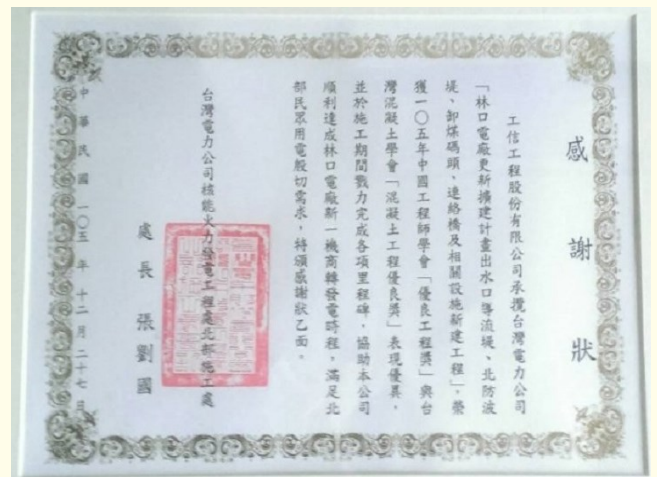 感謝狀
工信工程股份有限公司承攬台灣電力公司
「林口電廠更新擴建計畫出水口導流堤、北防波
堤、卸煤碼頭、連絡橋及相關設施新建工程」，榮
獲一〇五年中國工程師學會「優良工程獎」與台
灣混凝土學會「混凝土工程優良獎」表現優異，
並於施工期間戮力完成各項里程碑，協助本公司
順利達成林口電廠新一機商轉發電時程，滿足北
部民眾用電殷切需求，特頒感謝狀乙面。
台灣電力公司核能火力發電工程處北部施工處
處長 張劉國
中華民國一〇五年十二月二十七日